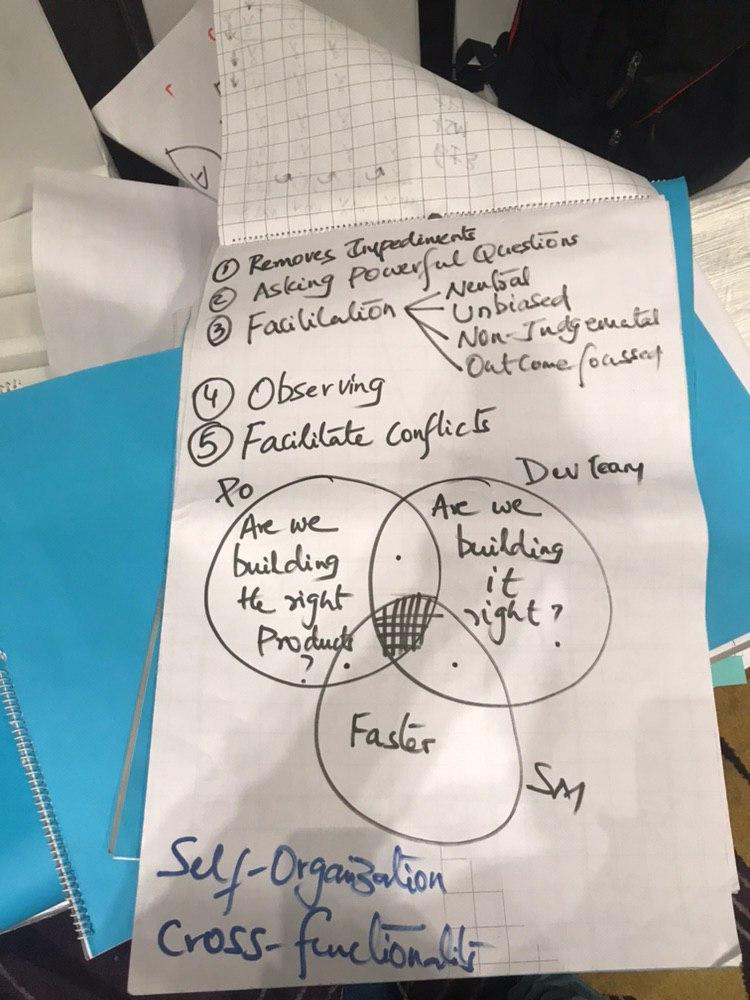 ① Removes Impediments
② Asking Powerful Questions
③ Facilitation
Neutral
Unbiased
Non-Judgemental
Outcome focussed
④ Observing
⑤ Facilitate Conflicts
PO
Are we
building
the right
Product
?
Dev Team
Are we
building
it
right?
Faster
SM
Self-Organization
Cross-functionality